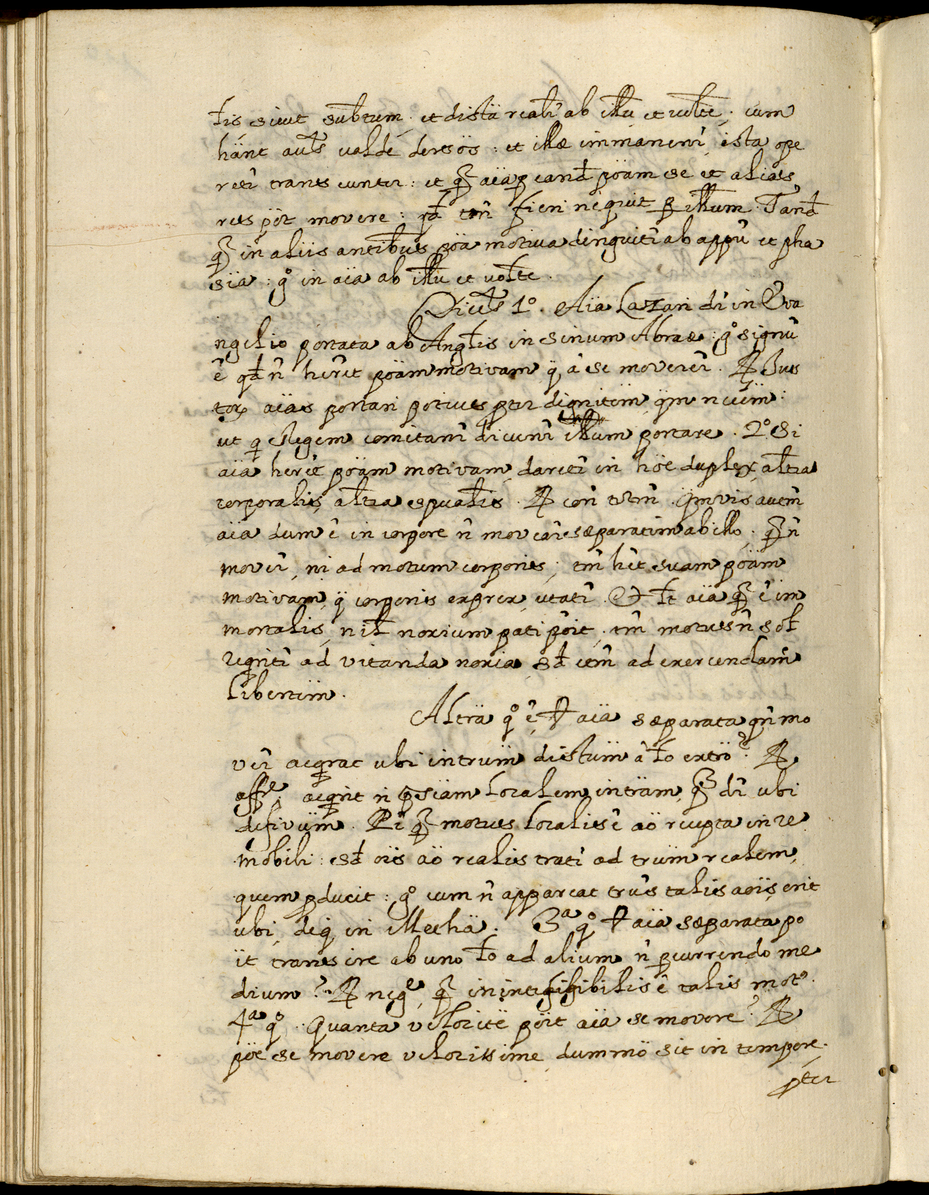 tis sicut subtum, et distä realr̃ ab illũ et volte; cum
hãnt actũs valdè dersös: et illæ immanenr̃, ista ope
retr̃ trans eunter: et q̃ aïa p eand̃ pöam se et alias
res põt movere: qd̃ tñ fieri nequit p illum. Tand̃
q̃ in aliis antibus pöa motiva dinguitr̃ ab appũ et pha
sia: gº in aïa ab illũ et volte.
Dices 1º. Aïa Lazari dr̃ in Eva
ngelio portata ab Anglis in sinum Abrae: gº signũ
ẽ qd̃ ñ herèt pöam motivam q̃ à se moverer̃. R̃ Jus
tor̃ aïas portari potius ptr dignitëm, q̃m ncïëm:
ut q Regem comitanr̃ dicunr̃ illum portare. 2º Si
aïa herèt pöam motivam, daretr̃ in höe duplex, altra
corporalis, altra espualis. R̃ con̄ totm̃. Q̃mvis autẽm
aïa dum ẽ in corpore ñ moveär separatim ab illo, q̃ ñ
mover̃, ni ad motum corporis; tm̃ hẽt suam pöam
motivam, q̃ corporis exprex, utatr̃. Et lt aïa q̃ ẽ im
mortalis, nil noxium pati põit, tm̃ motus ñ sol
reqritr̃ ad vitanda noxia, sd̃ etm̃ ad exercendam
libertäm.
Alträ qº ẽ, ũ aïa separata qñ mo
ver̃ acqrat ubi intrum distum à lo extrö? R̃
affe, acqrit ñ psëiam localem inträm, q̃ dr̃ ubi
defivüm. Pr̃ q̃ motus localis ẽ aö recepta in re
mobili: sd̃ oïs aö realis tratr̃ ad trum realem,
quem pducit; gº cum ñ appareat trũs talis aöis, erit
ubi, de q̃ in Mechä. 3ª qº ũ aïa separata po
ït transire ab uno lo ad alium ñ pcurrendo me
dium? R̃ nege, q̃ inintelligibilis ẽ talis motº.
4ª qº. Quanta velocitë põit aïa se movere? R̃
põe se movere velocissime, dummö sit in tempore.
pter